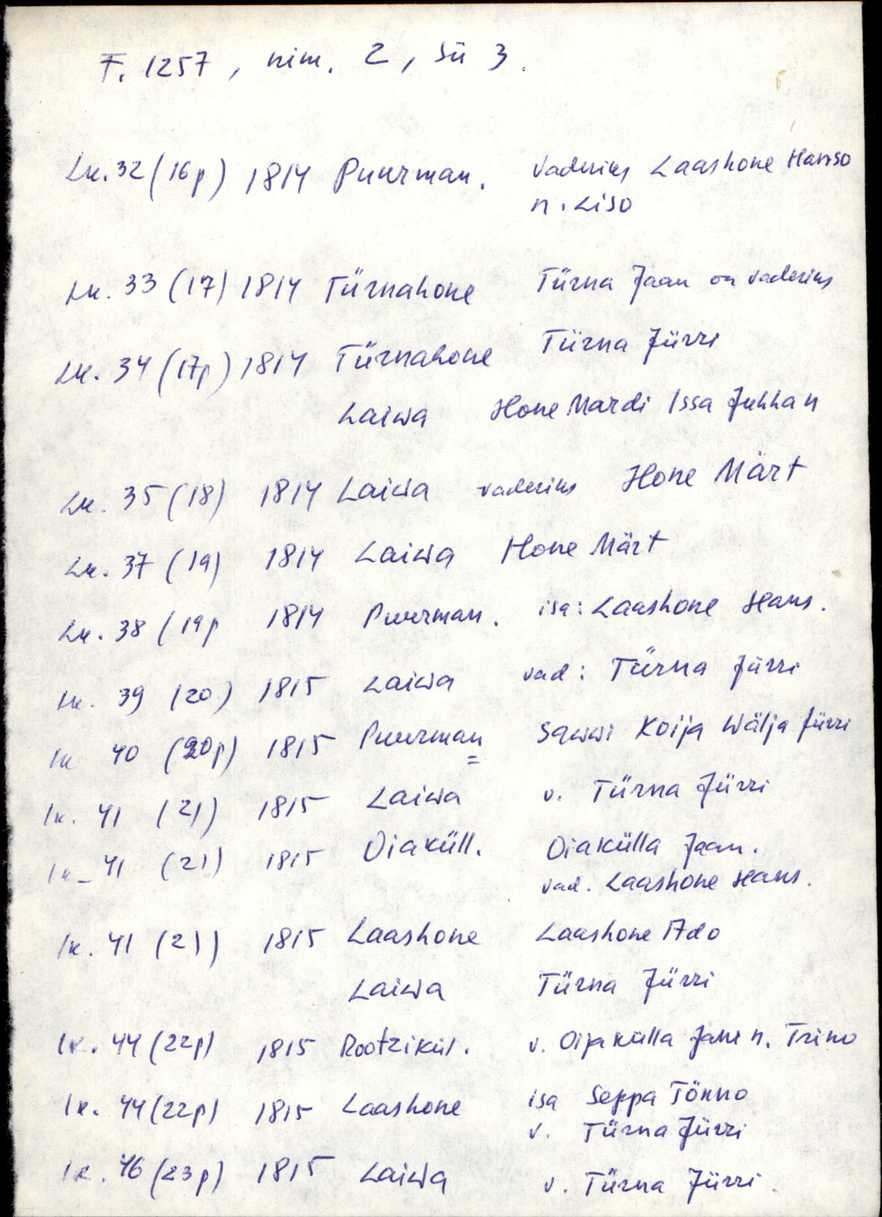 F. 1257, nim. 2, sü 3.
Lk. 32 (16p) 1814 Puurman. vaderins Laashone Hanso
n. Liso
Lk. 33 (17) 1814 Türnahone Türna Jaan on vaderins
Lk. 34 (17p) 1814 Türnahone Türna Jürri
Laiwa Hone Mardi Issa Juhhan
Lk. 35 (18) 1814 Laiwa vaderins Hone Märt
Lk. 37 (19) 1814 Laiwa Hone Märt
Lk. 38 (19p 1814 Puurman. isa: Laashone Hans.
lk. 39 (20) 1815 Laiwa vad: Türna Jürri
lk 40 (20p) 1815 Puurman Sawwi Koija Wälja Jürri
lk. 41 (21) 1815 Laiwa v. Türna Jürri
lk. 41 (21) 1815 Oiaküll. Oiakülla Jaan.
vad. Laashone Hans.
lk. 41 (21) 1815 Laashone Laashone Ado
Laiwa Türna Jürri
lk. 44 (22p) 1815 Rootzikül. v. Oijakülla Jane n. Trino
lk. 44 (22p) 1815 Laashone isa Seppa Tönno
v. Türna Jürri
lk. 46 (23p) 1815 Laiwa v. Türna Jürri.